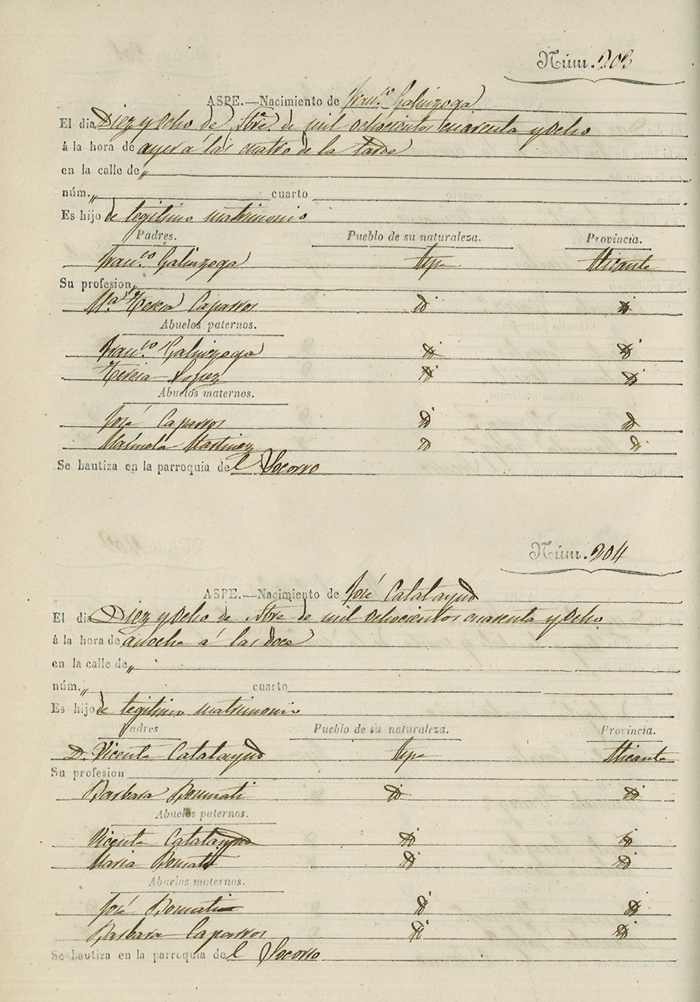 Núm. 203
ASPE.—Nacimiento de Fran.co Galinzoga
El dia Diez y ocho de Stre. de mil ochocientos cuarenta y ocho
á la hora de ayer á las cuatro de la tarde
en la calle de „
núm. „ cuarto
Es hijo de legitimo matrimonio
Padres. Pueblo de su naturaleza. Provincia.
Fran.co Galinzoga Aspe Alicante
Su profesion
M.a Teresa Caparros id id
Abuelos paternos.
Fran.co Galinzoga id id
Teresa Lopez id id
Abuelos maternos.
José Caparros id id
Manuela Martinez id id
Se bautiza en la parroquia del Socorro
Núm. 204
ASPE.—Nacimiento de José Catalayud
El dia Diez y ocho de Stre de mil ochocientos cuarenta y ocho
á la hora de anoche á las doce
en la calle de „
núm. „ cuarto
Es hijo de legitimo matrimonio
Padres Pueblo de su naturaleza. Provincia.
D. Vicente Catalayud Aspe Alicante
Su profesion
Barbara Bonmati id id
Abuelos paternos.
Vicente Catalayud id id
Maria Bonmati id id
Abuelos maternos.
José Bonmati id id
Barbara Caparros id id
Se bautiza en la parroquia del Socorro